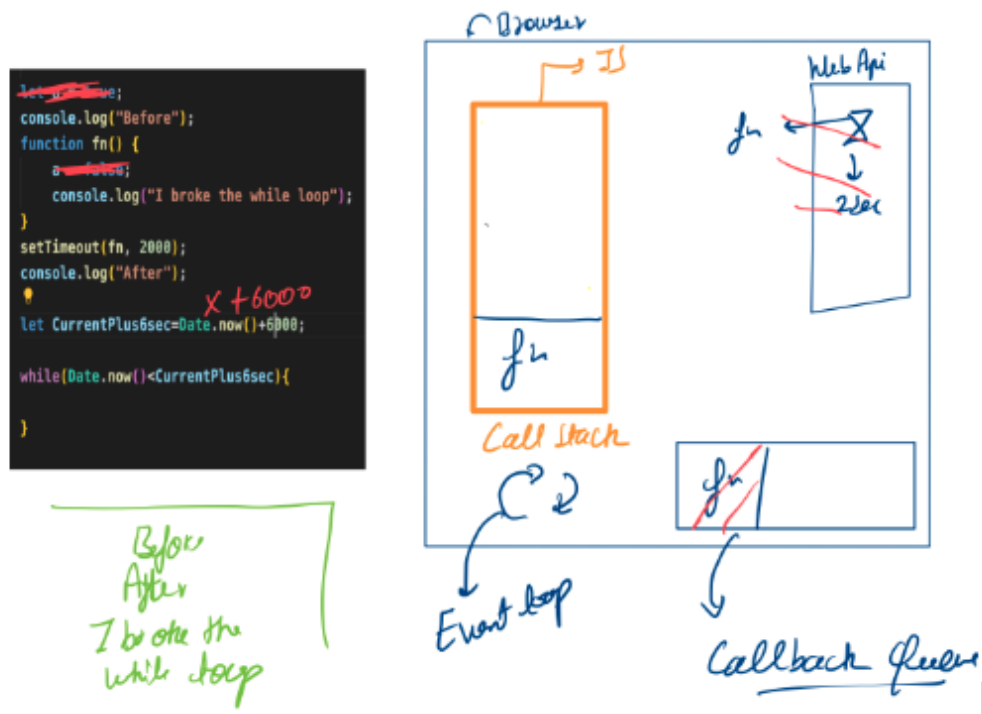 let a = true;
console.log("Before");
function fn() {
a = false;
console.log("I broke the while loop");
}
setTimeout(fn, 2000);
console.log("After");
X + 6000
let CurrentPlus6sec=Date.now()+6000;
while(Date.now()<CurrentPlus6sec){
}
Before
After
I broke the
while loop
Browser
JS
Web Api
fn
2 sec
fn
Call Stack
fn
Event loop
Callback Queue